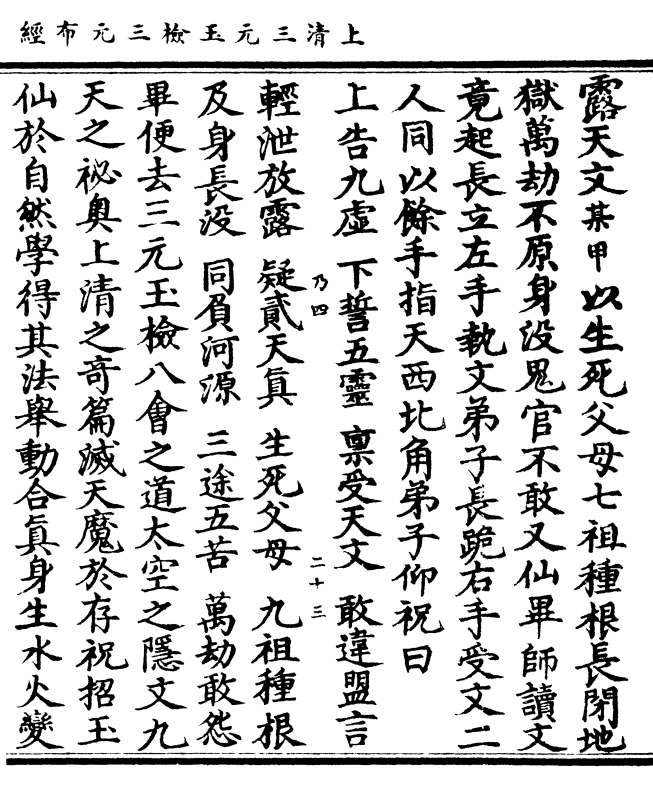 上清三元玉檢三元布經
露天文某甲以生死父母七祖種根長閉地
獄萬劫不原身没鬼官不敢又仙畢師讀文
竟起長立左手執文弟子長跪右手受文二
人同以餘手指天西北角弟子仰祝曰
上告九虛 下誓五靈 禀受天文 敢違盟言
乃四 二十三
輕泄放露 疑貳天真 生死父母 九祖種根
及身長没 同負河源 三途五苦 萬劫敢怨
畢便去三元玉檢八會之道太空之隱文九
天之祕奥上清之奇篇滅天魔於存祝招玉
仙於自然學得其法舉動合真身生水火變